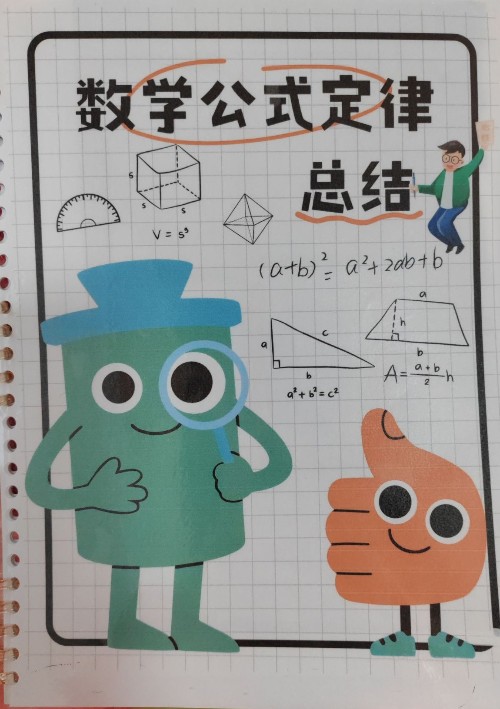 数学公式定律
总结
s
s
s
V = s³
(a+b)² = a²+2ab+b
a
c
b
a² + b² = c²
a
h
b
A = a+b/2 h